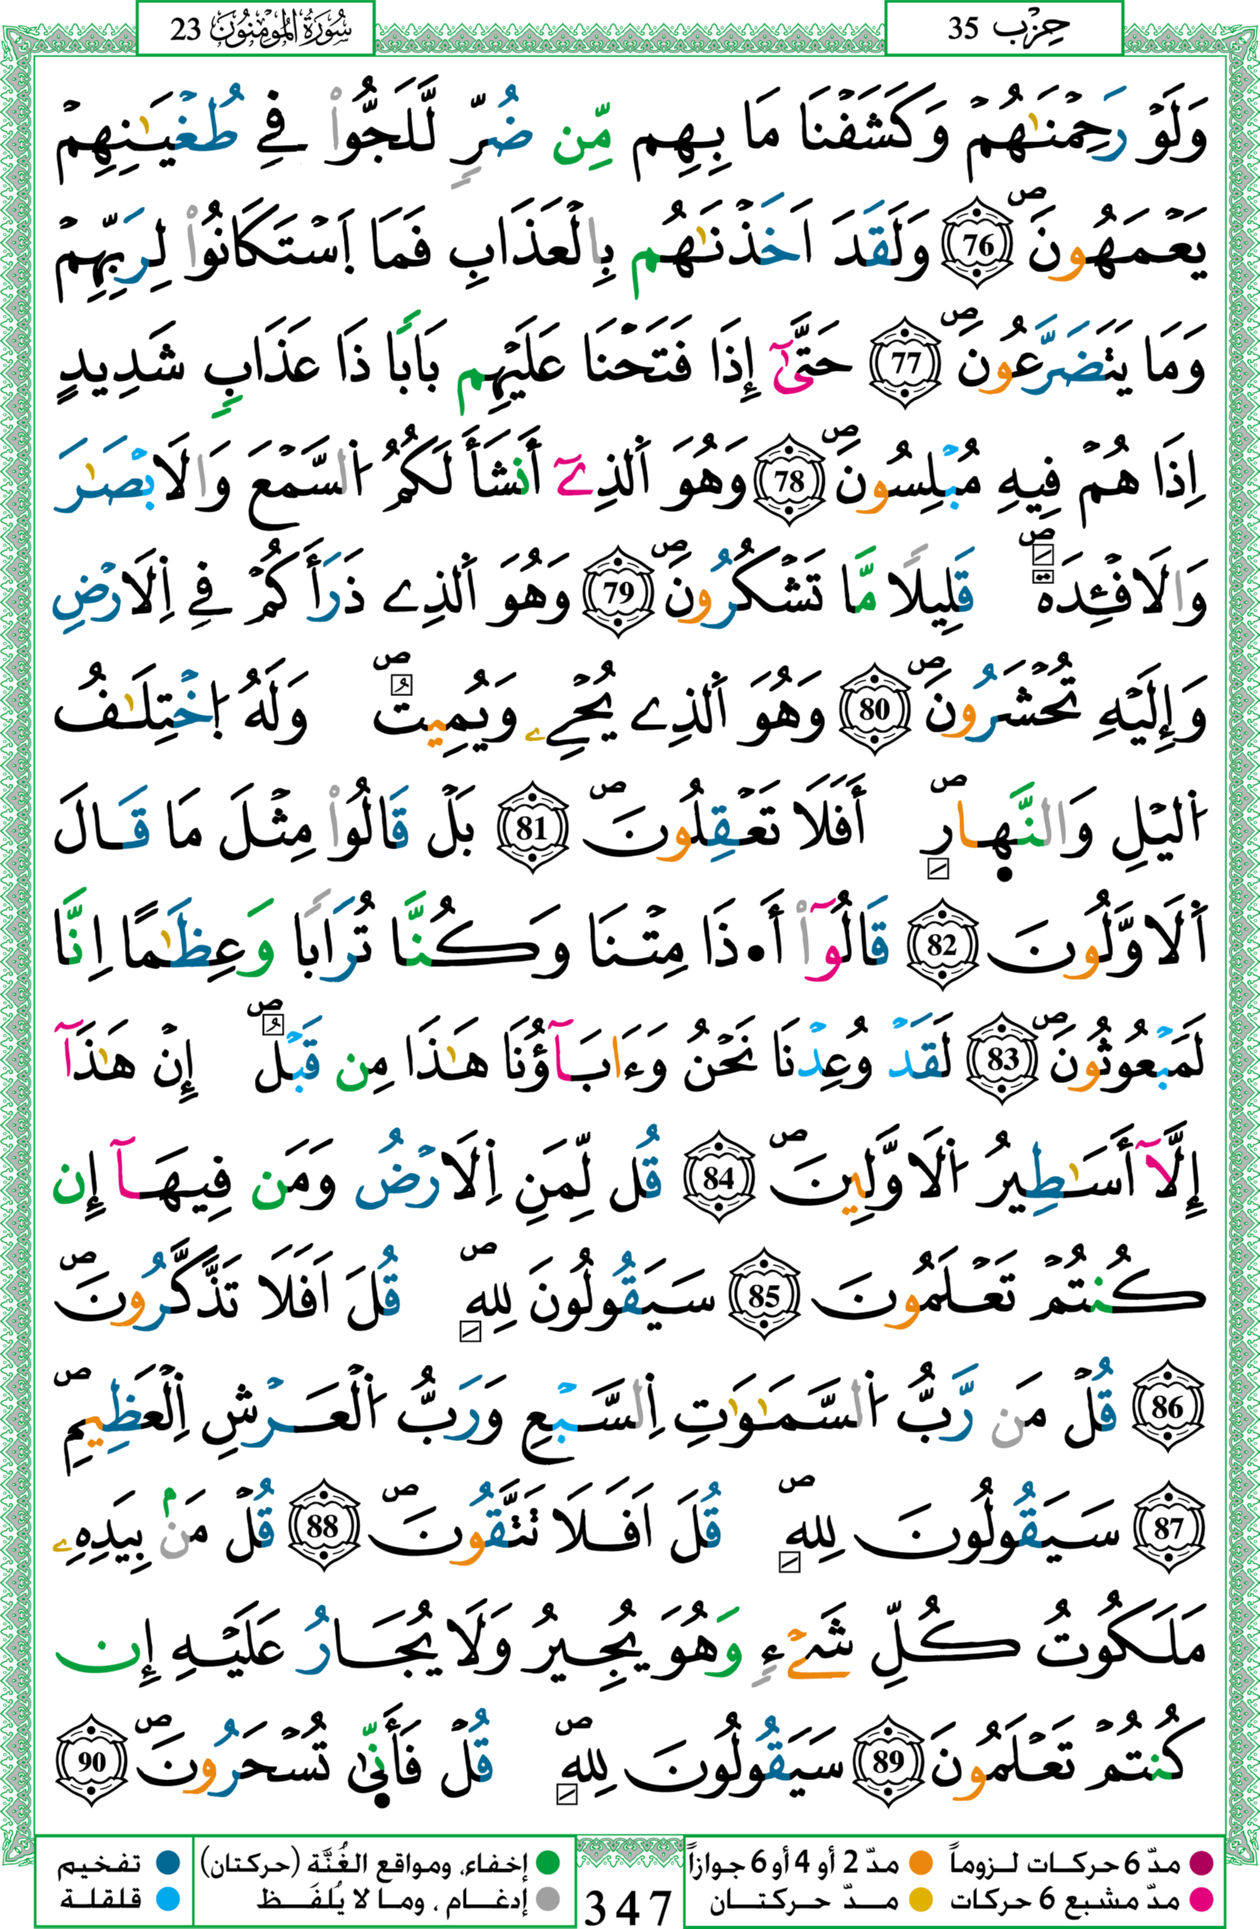 سُورَةُ المُومِنُونَ 23
حِزْب 35
وَلَوْ رَحِمْنَٰهُمْ وَكَشَفْنَا مَا بِهِم مِّن ضُرٍّ لَّلَجُّواْ فِے طُغْيَٰنِهِمْ
يَعْمَهُونَۖ 76 وَلَقَدَ اَخَذْنَٰهُم بِالْعَذَابِ فَمَا اَسْتَكَانُواْ لِرَبِّهِمْ
وَمَا يَتَضَرَّعُونَۖ 77 حَتَّىٰٓ إِذَا فَتَحْنَا عَلَيْهِم بَابًا ذَا عَذَابٍ شَدِيدٍ
اِذَا هُمْ فِيهِ مُبْلِسُونَۖ 78 وَهُوَ اَلذِےٓ أَنشَأَ لَكُمُ اُلسَّمْعَ وَالَابْصَٰرَ
وَالَافْـِٕدَةَۖ قَلِيلًا مَّا تَشْكُرُونَۖ 79 وَهُوَ اَلذِے ذَرَأَكُمْ فِے اِلَارْضِ
وَإِلَيْهِ تُحْشَرُونَۖ 80 وَهُوَ اَلذِے يُحْيِۦ وَيُمِيتُۖ وَلَهُ اُخْتِلَٰفُ
اُليْلِ وَالنَّهارِۖ أَفَلَا تَعْقِلُونَۖ 81 بَلْ قَالُواْ مِثْلَ مَا قَالَ
اَلَاوَّلُونَ 82 قَالُوٓاْ أَ•ذَا مِتْنَا وَكُنَّا تُرَابًا وَعِظَٰمًا اِنَّا
لَمَبْعُوثُونَۖ 83 لَقَدْ وُعِدْنَا نَحْنُ وَءَابَآؤُنَا هَٰذَا مِن قَبْلُۖ إِنْ هَٰذَآ
إِلَّآ أَسَٰطِيرُ اُلَاوَّلِينَۖ 84 قُل لِّمَنِ اِلَارْضُ وَمَن فِيهَآ إِن
كُنتُمْ تَعْلَمُونَ 85 سَيَقُولُونَ لِلهِۖ قُلَ اَفَلَا تَذَّكَّرُونَۖ
86 قُلْ مَن رَّبُّ اُلسَّمَٰوَٰتِ اِلسَّبْعِ وَرَبُّ اُلْعَرْشِ اِلْعَظِيمِۖ
87 سَيَقُولُونَ لِلهِۖ قُلَ اَفَلَا تَتَّقُونَۖ 88 قُلْ مَنۢ بِيَدِهِۦ
مَلَكُوتُ كُلِّ شَےْءٍ وَهُوَ يُجِيرُ وَلَا يُجَارُ عَلَيْهِ إِن
كُنتُمْ تَعْلَمُونَ 89 سَيَقُولُونَ لِلهِۖ قُلْ فَأَنّٜىٰ تُسْحَرُونَۖ 90
مدّ 6 حركات لـزوماً
مدّ 2 أو 4 أو 6 جوازاً
إخفاء، ومواقع الغُنَّة (حركتان)
تفخيم
مدّ مشبع 6 حركات
مـدّ حـركتـان
إدغـام ، ومـا لا يُلفَـظ
قلقلة
347